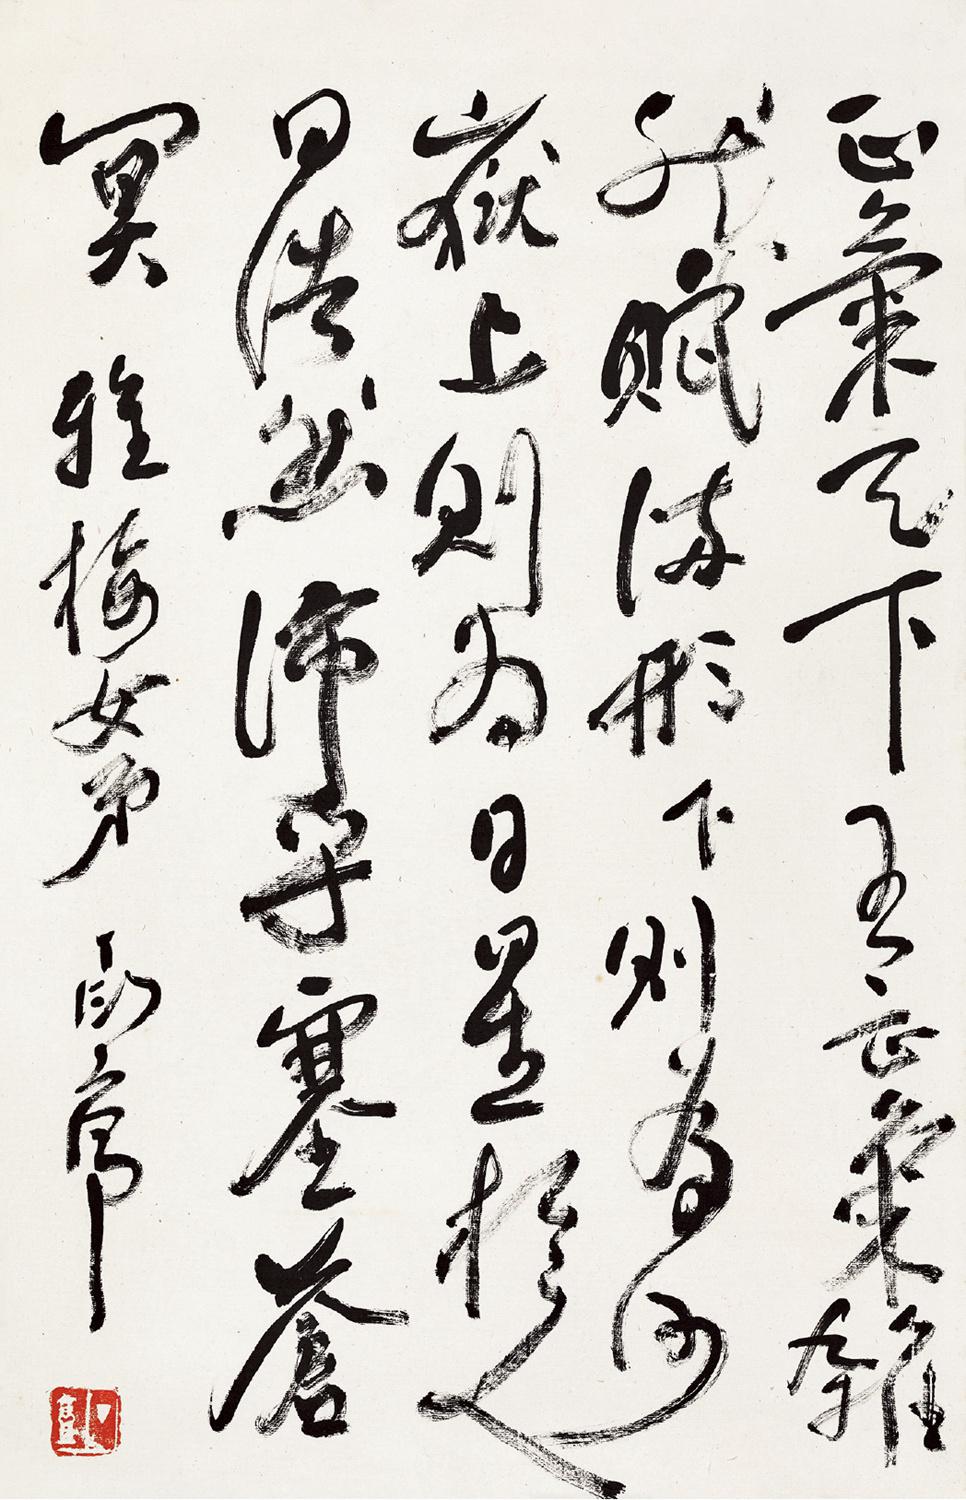 正氣天下有正氣雜
然賦流形下則為河
嶽上則為日星於人
曰浩然沛乎塞蒼
冥 雅梅女弟